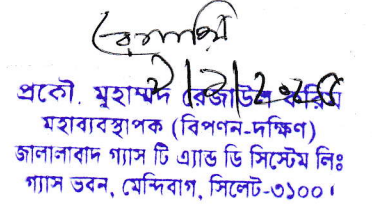 প্রকৌ. মুহাম্মদ রেজাউল করিম
মহাব্যবস্থাপক (বিপণন-দক্ষিণ)
জালালাবাদ গ্যাস টি এ্যান্ড ডি সিস্টেম লিঃ
গ্যাস ভবন, মেন্দিবাগ, সিলেট-৩১০০।